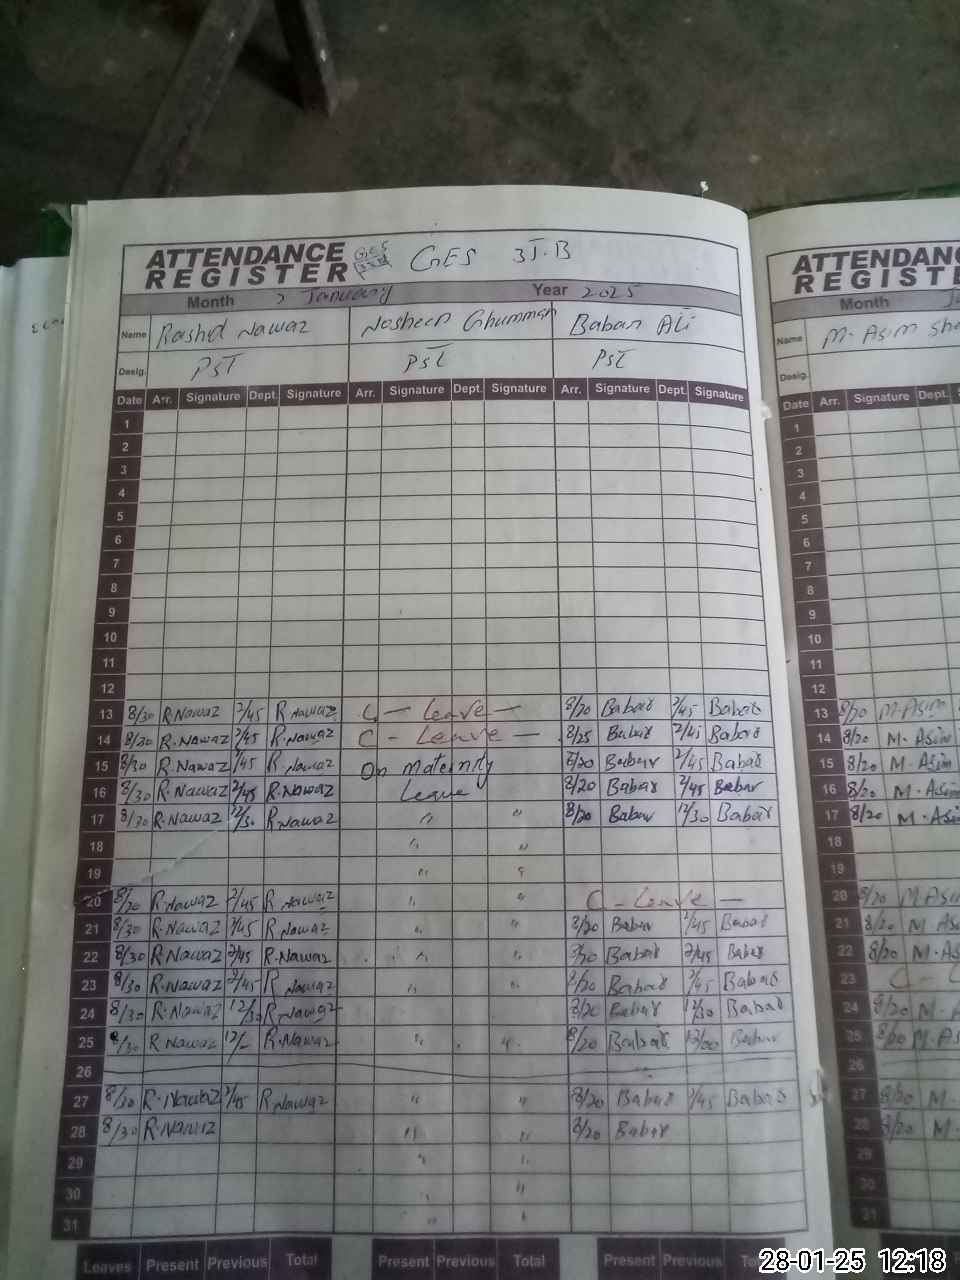 ATTENDANCE REGISTER GES 3J.B
Month January Year 2025
Name Rashid Nawaz Nosheen Ghumman Babar Ali
Desig. PST PST PST
Date Arr. Signature Dept. Signature Arr. Signature Dept. Signature Arr. Signature Dept. Signature
1
2
3
4
5
6
7
8
9
10
11
12
13 8/30 R.Nawaz 2/45 R.Nawaz C - Leave - 8/20 Babar 2/45 Babar
14 8/30 R.Nawaz 2/45 R.Nawaz C - Leave - 8/25 Babar 2/45 Babar
15 8/30 R.Nawaz 2/45 R.Nawaz On maternity 8/20 Babar 2/45 Babar
16 8/30 R.Nawaz 2/45 R.Nawaz Leave 8/20 Babar 2/45 Babar
17 8/30 R.Nawaz 12/30 R.Nawaz " " 8/20 Babar 12/30 Babar
18 " "
19 " "
20 8/20 R.Nawaz 2/45 R Nawaz " " C - Leave -
21 8/30 R.Nawaz 2/45 R.Nawaz " " 8/20 Babar 2/45 Babar
22 8/30 R.Nawaz 2/45 R.Nawaz " " 8/20 Babar 2/45 Babar
23 8/30 R.Nawaz 2/45 R Nawaz " " 8/20 Babar 2/45 Babar
24 8/30 R.Nawaz 12/30 R.Nawaz " " 8/20 Babar 12/30 Babar
25 8/30 R Nawaz 12/- R.Nawaz " " 8/20 Babar 12/00 Babar
26
27 8/30 R.Nawaz 2/45 R Nawaz " " 8/20 Babar 2/45 Babar
28 8/30 R.Nawaz " " 8/20 Babar
29 " "
30 " "
31 " "
Leaves Present Previous Total Present Previous Total Present Previous
ATTENDANC
REGISTE
Month
Name M. Asim
Desig.
Date Arr. Signature Dept.
1
2
3
4
5
6
7
8
9
10
11
12
13 8/20 M.Asim
14 8/20 M.Asim
15 8/20 M.Asim
16 8/20 M.Asim
17 8/20 M.Asi
18
19
20 8/20 M.Asi
21 8/20 M.As
22 8/20 M.As
23 C -
24 8/20 M.A
25 8/20 M.As
26
27 8/20 M.
28 8/20 M.
29
30
31
28-01-25 12:18